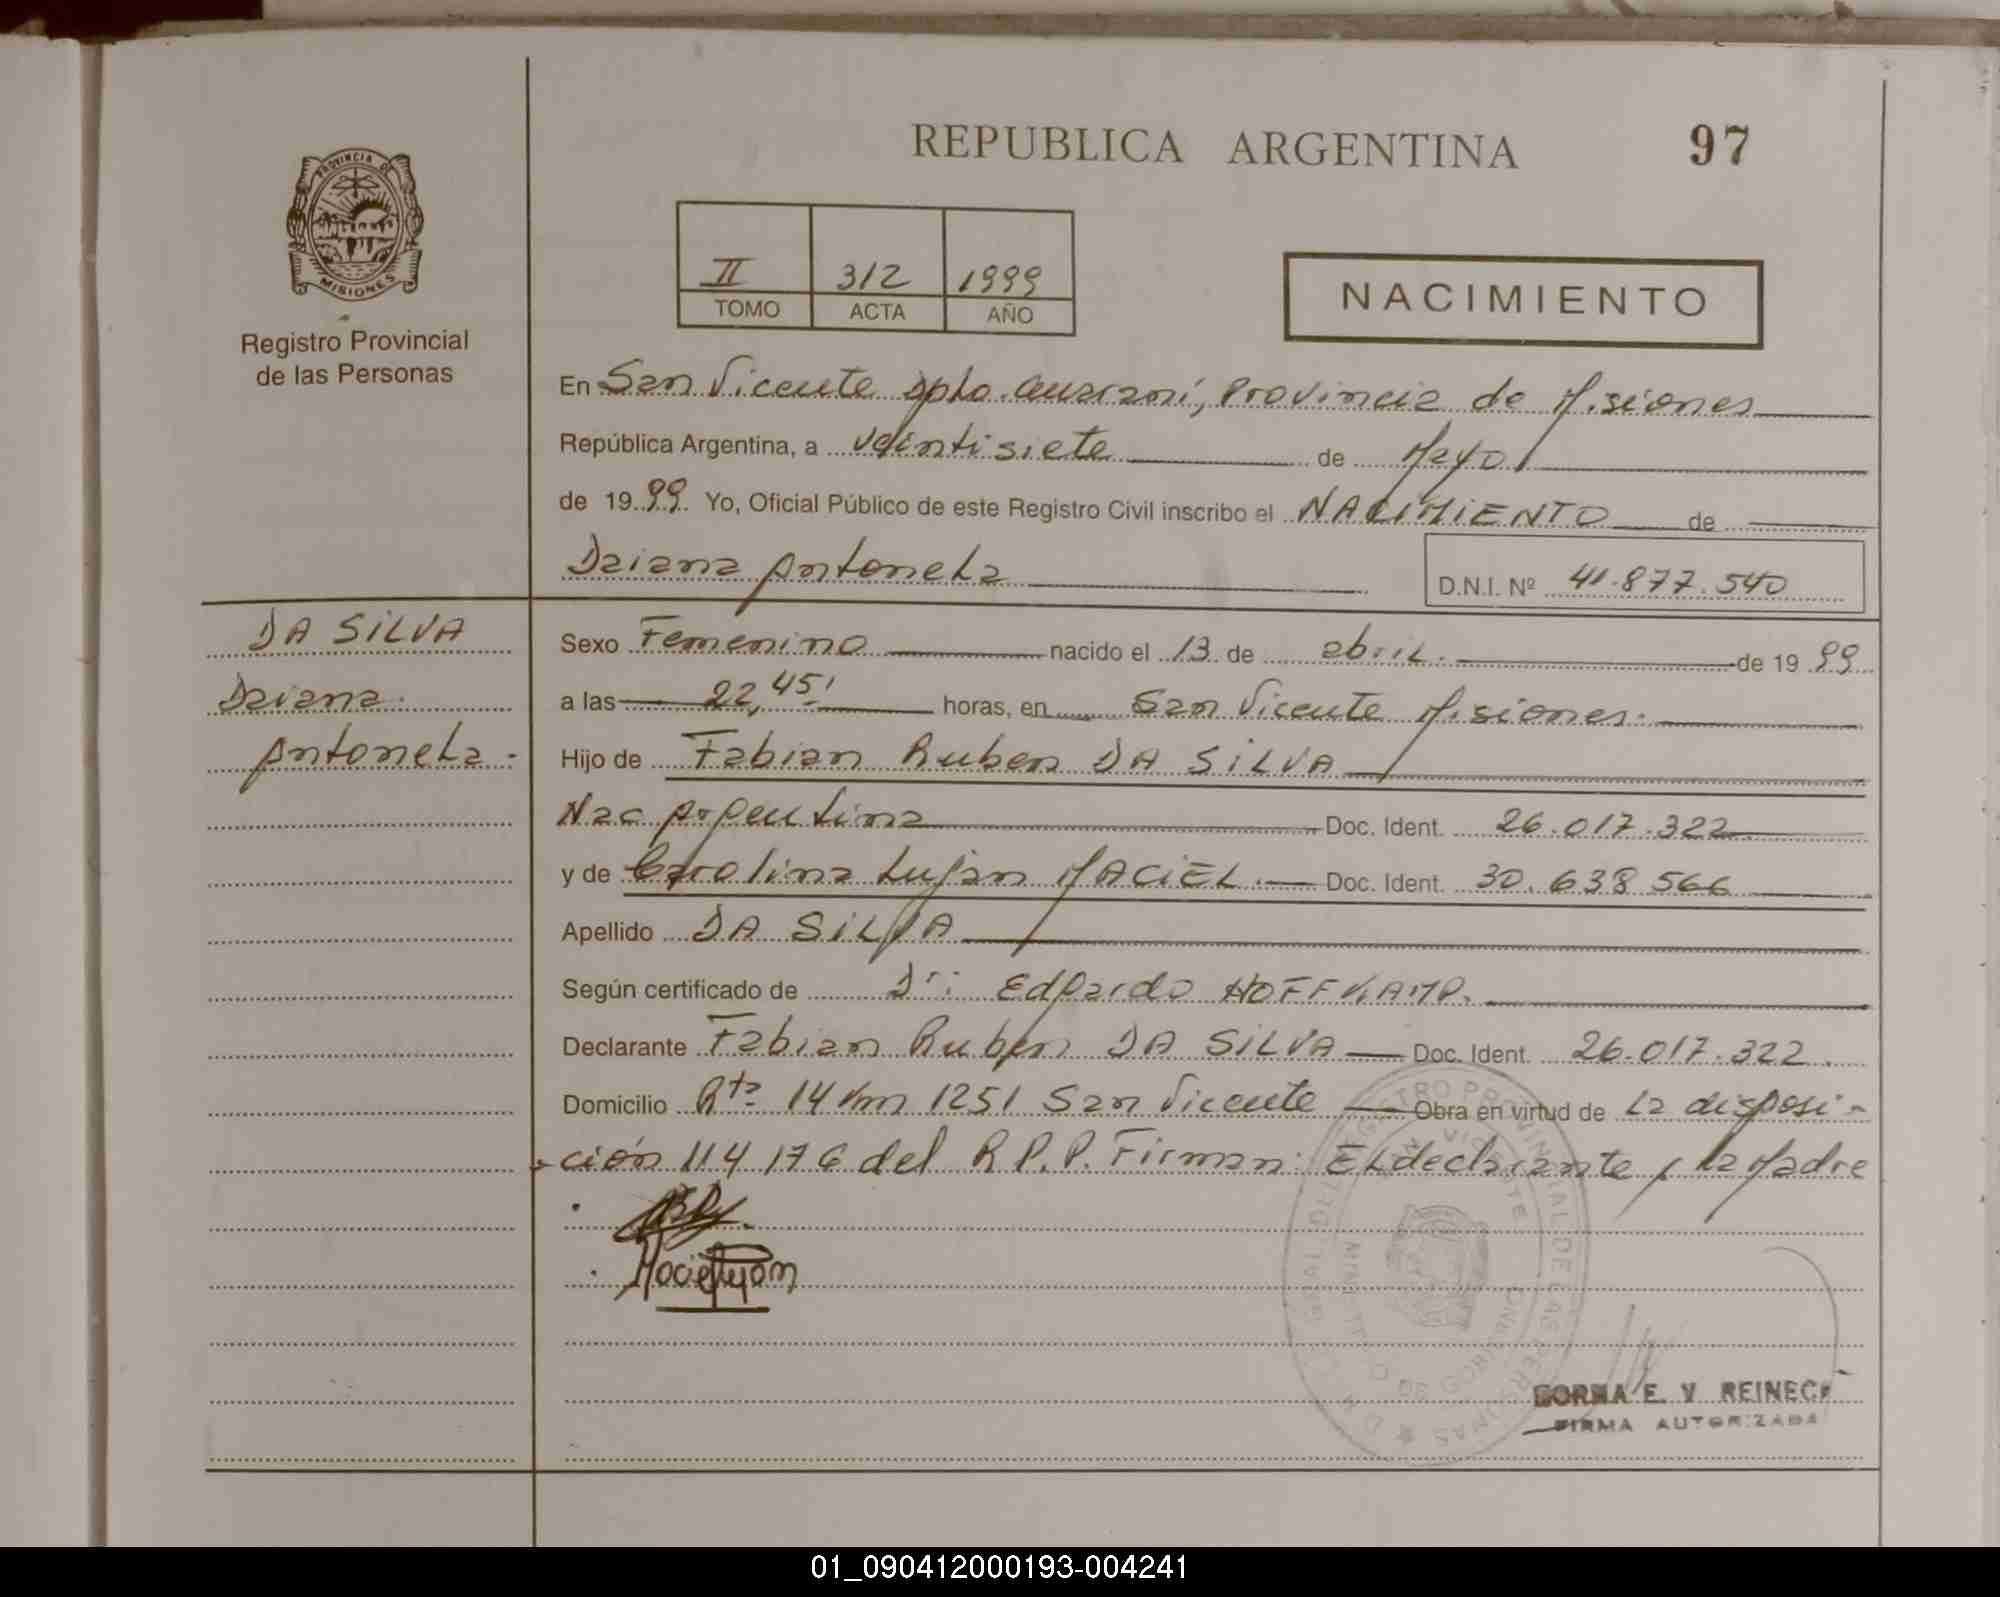 REPUBLICA ARGENTINA
97
PROVINCIA DE
MISIONES
Registro Provincial
de las Personas
II 312 1999
TOMO ACTA AÑO
NACIMIENTO
En San Vicente Dpto. Guaraní, Provincia de Misiones
República Argentina, a veintisiete de Mayo
de 1999 Yo, Oficial Público de este Registro Civil inscribo el NACIMIENTO de
Daiana Antonela
D.N.I. Nº 41.877.540
DA SILVA
Daiana
Antonela.-
Sexo Femenino nacido el 13 de abril. de 1999
a las 22,45' horas, en San Vicente Misiones.
Hijo de Fabian Ruben DA SILVA
Nac Argentina Doc. Ident. 26.017.322
y de Carolina Lujan MACIEL.- Doc. Ident. 30.638566
Apellido DA SILVA
Según certificado de Dr: Edgardo HOFFKAMP.
Declarante Fabian Ruben DA SILVA Doc. Ident. 26.017.322.
Domicilio Rta 14 km 1251 San Vicente Obra en virtud de la disposi-
ción 114176 del R.P.P. Firman: El declarante y la Madre
Maciel Lujan
REGISTRO PROVINCIAL DE LAS PERSONAS
SAN VICENTE
E. V REINECK
FIRMA AUTORIZADA
01_090412000193-004241